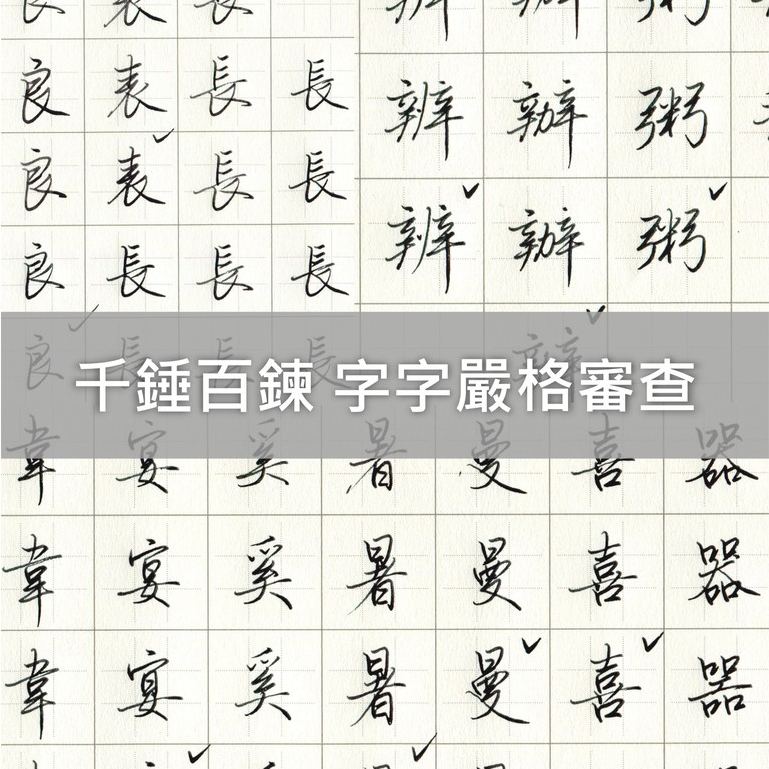 良 表 長 長
良 表 長 長
良 長 長 長
辨 辦 粥
辨 辦 粥
良 長 長 長 辦
千錘百鍊 字字嚴格審查
韋 宴 奚 暑 曼 喜 器
韋 宴 奚 暑 曼 喜 器
韋 宴 奚 暑 曼 喜 噐